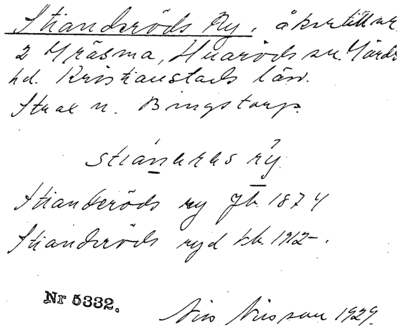 Stianderöds Ry. åker till nr
2 Gräsma, Huaröds sn. Gärds
hd. Kristianstads län.
Strax n. Bingstorp.
ry.
Stianderöds ry jb 1874
Stianderöds ryd kb 1912-.
Nr 5332.
Nils Nilsson 1929.